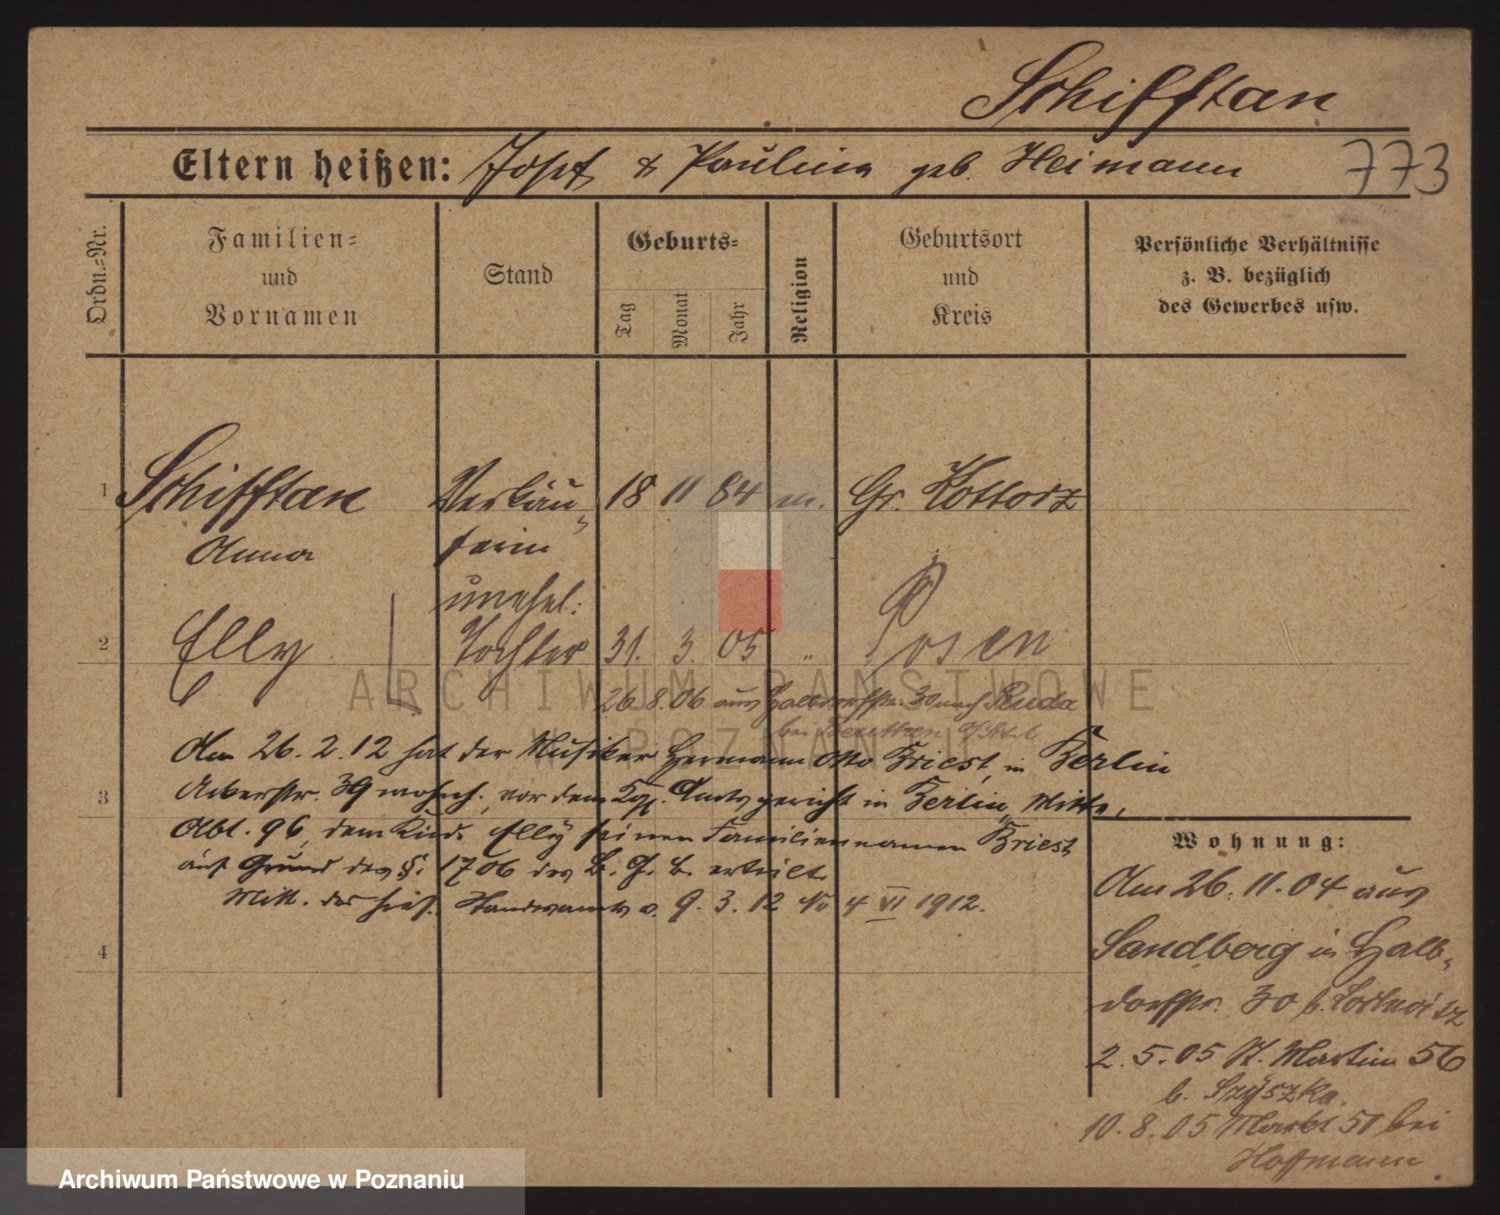 Schifftan
Eltern heißen: Josef & Paulina geb. Heimann 773
Ordn.-Nr.
Familien-
und
Vornamen
Stand
Geburts-
Tag
Monat
Jahr
Religion
Geburtsort
und
Kreis
Persönliche Verhältnisse
z. B. bezüglich
des Gewerbes usw.
1 Schifftan Verkäu- 18 11 84 m. Gr. Kottorz
Anna ferin
unehel.
2 Elly Tochter 31. 3. 05 " Posen
26.8.06 aus Halbdorfstr. 30 nach Ruda
bei Beuthen
Am 26.2.12 hat der Musiker Hermann Otto Briest, in Berlin
3 Ackerstr. 39 wohnh., vor dem Kgl. Amtsgericht in Berlin Mitte,
Abt. 96, dem Kinde Elly seinen Familiennamen Briest
auf Grund des §. 1706 des B. G. B. erteilt.
Mitt. des hies. Standesamts v. 9. 3. 12 4 VI 1912.
4
Wohnung:
Am 26.11.04 aus
Sandberg in Halb-
dorfstr. 30 b.
2.5.05 St. Martin 56
b. Szyszka.
10.8.05 Markt 51 bei
Hoffmann
ARCHIWUM PAŃSTWOWE
W POZNANIU
Archiwum Państwowe w Poznaniu